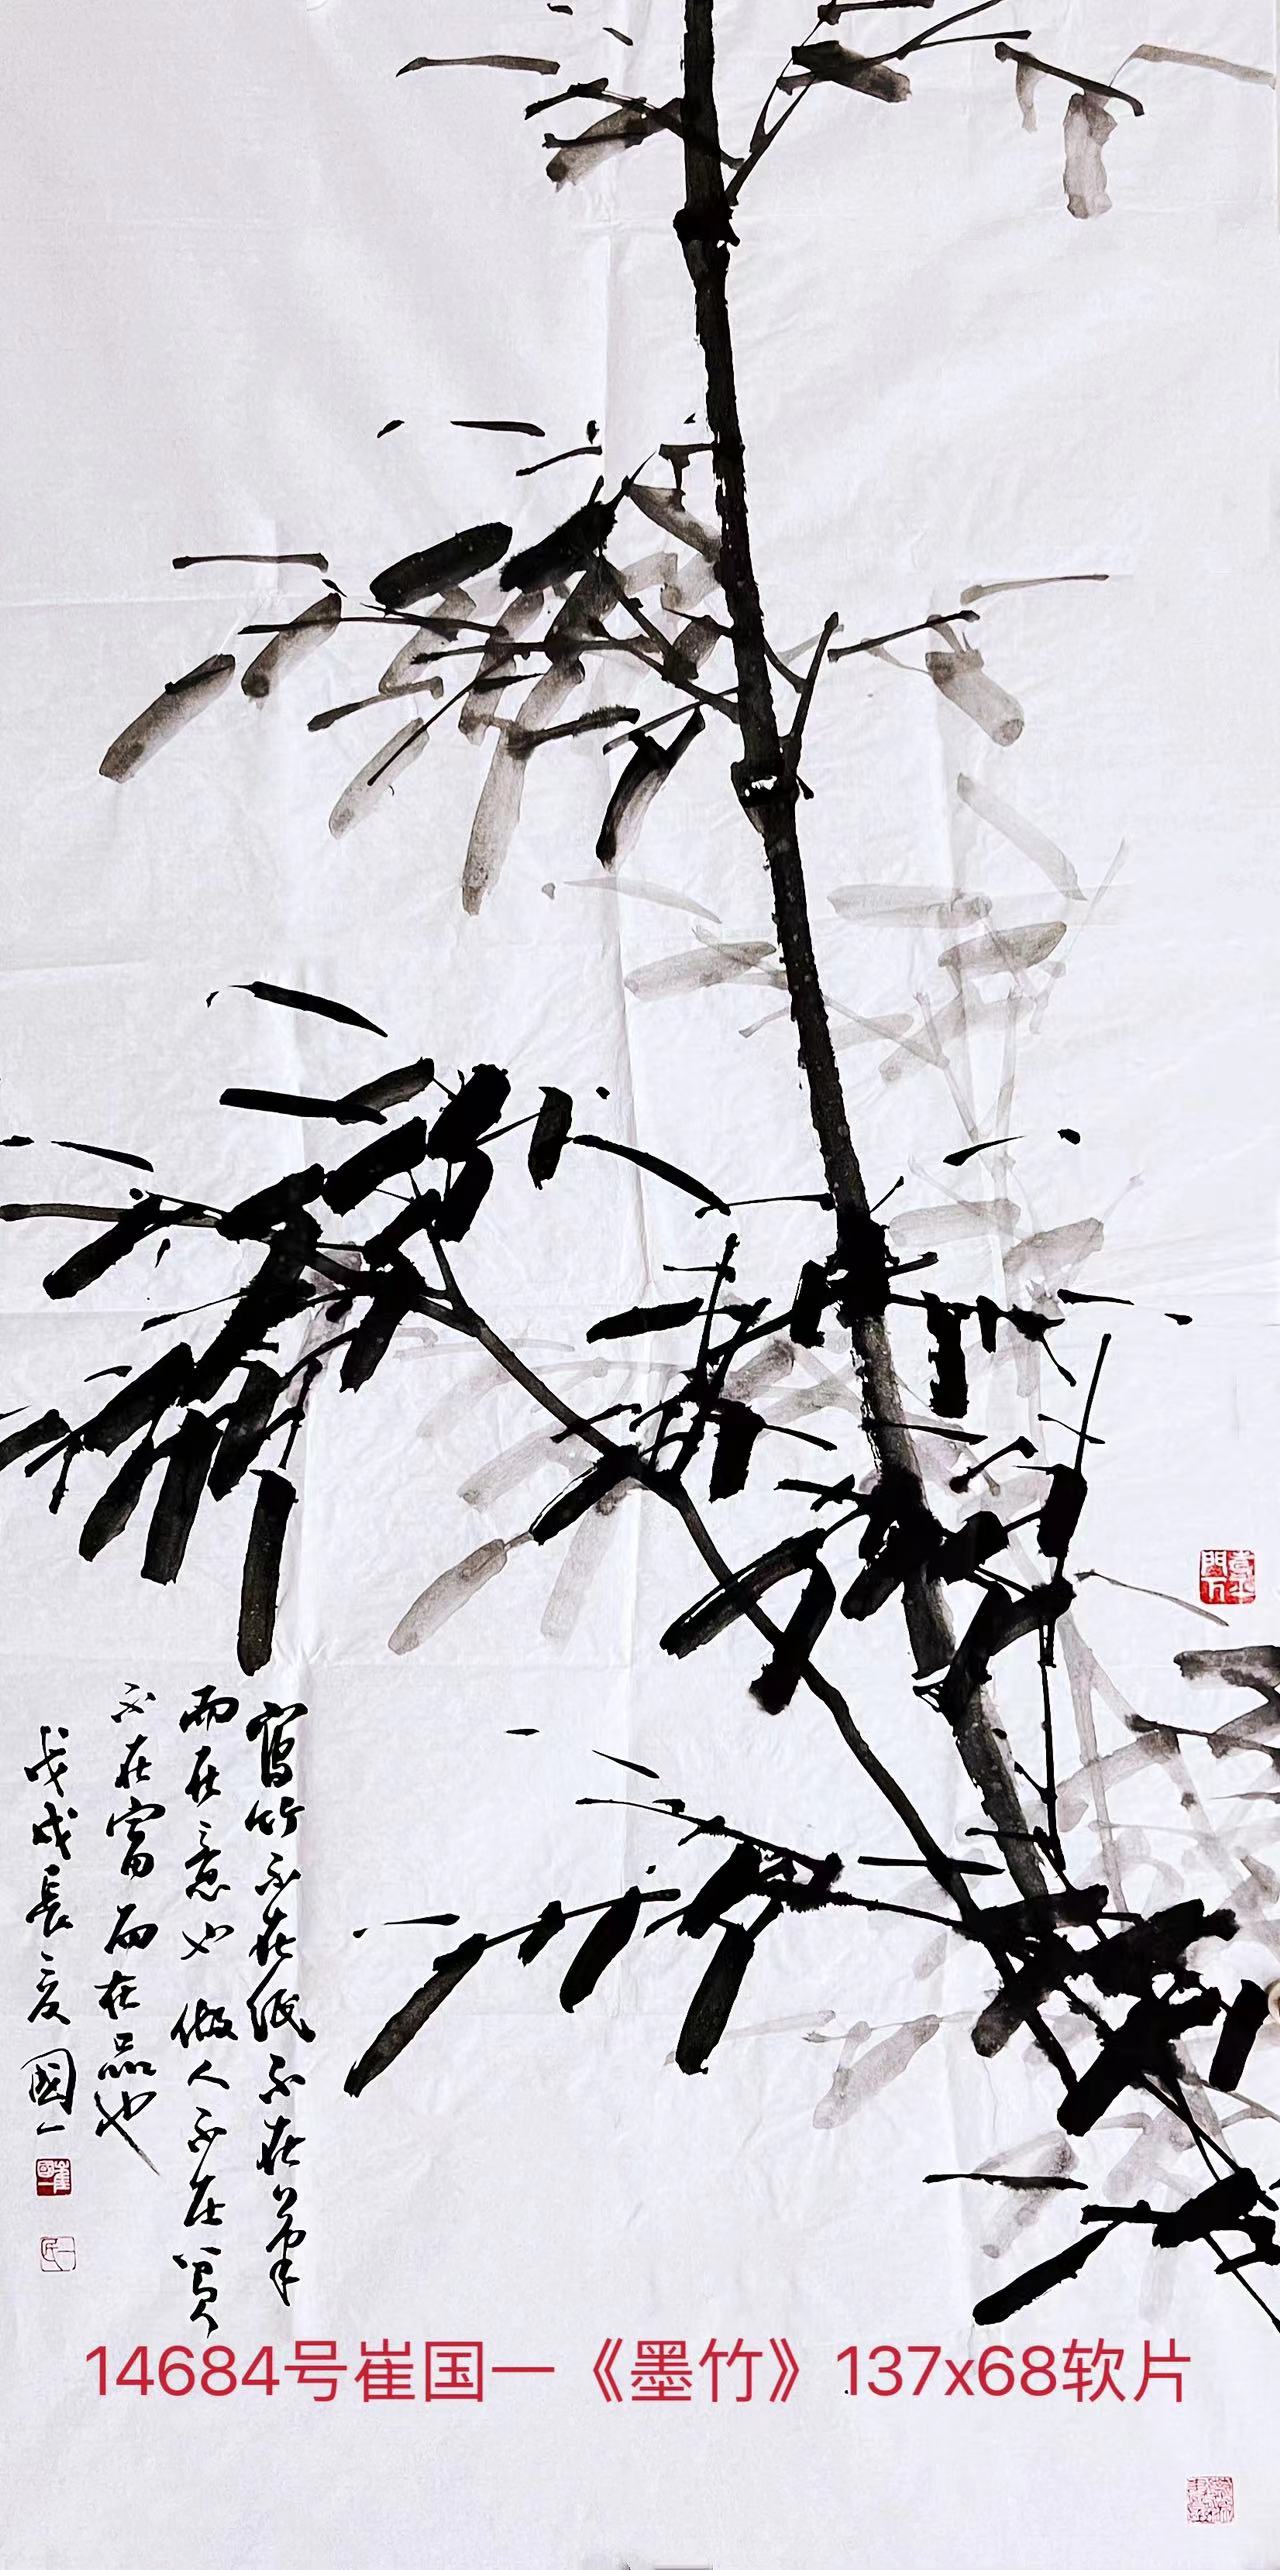 寫竹不在紙不在筆
而在意也做人不在貧
不在富而在品也
戊戌長夏國一
崔國一
14684号崔国一《墨竹》137x68软片